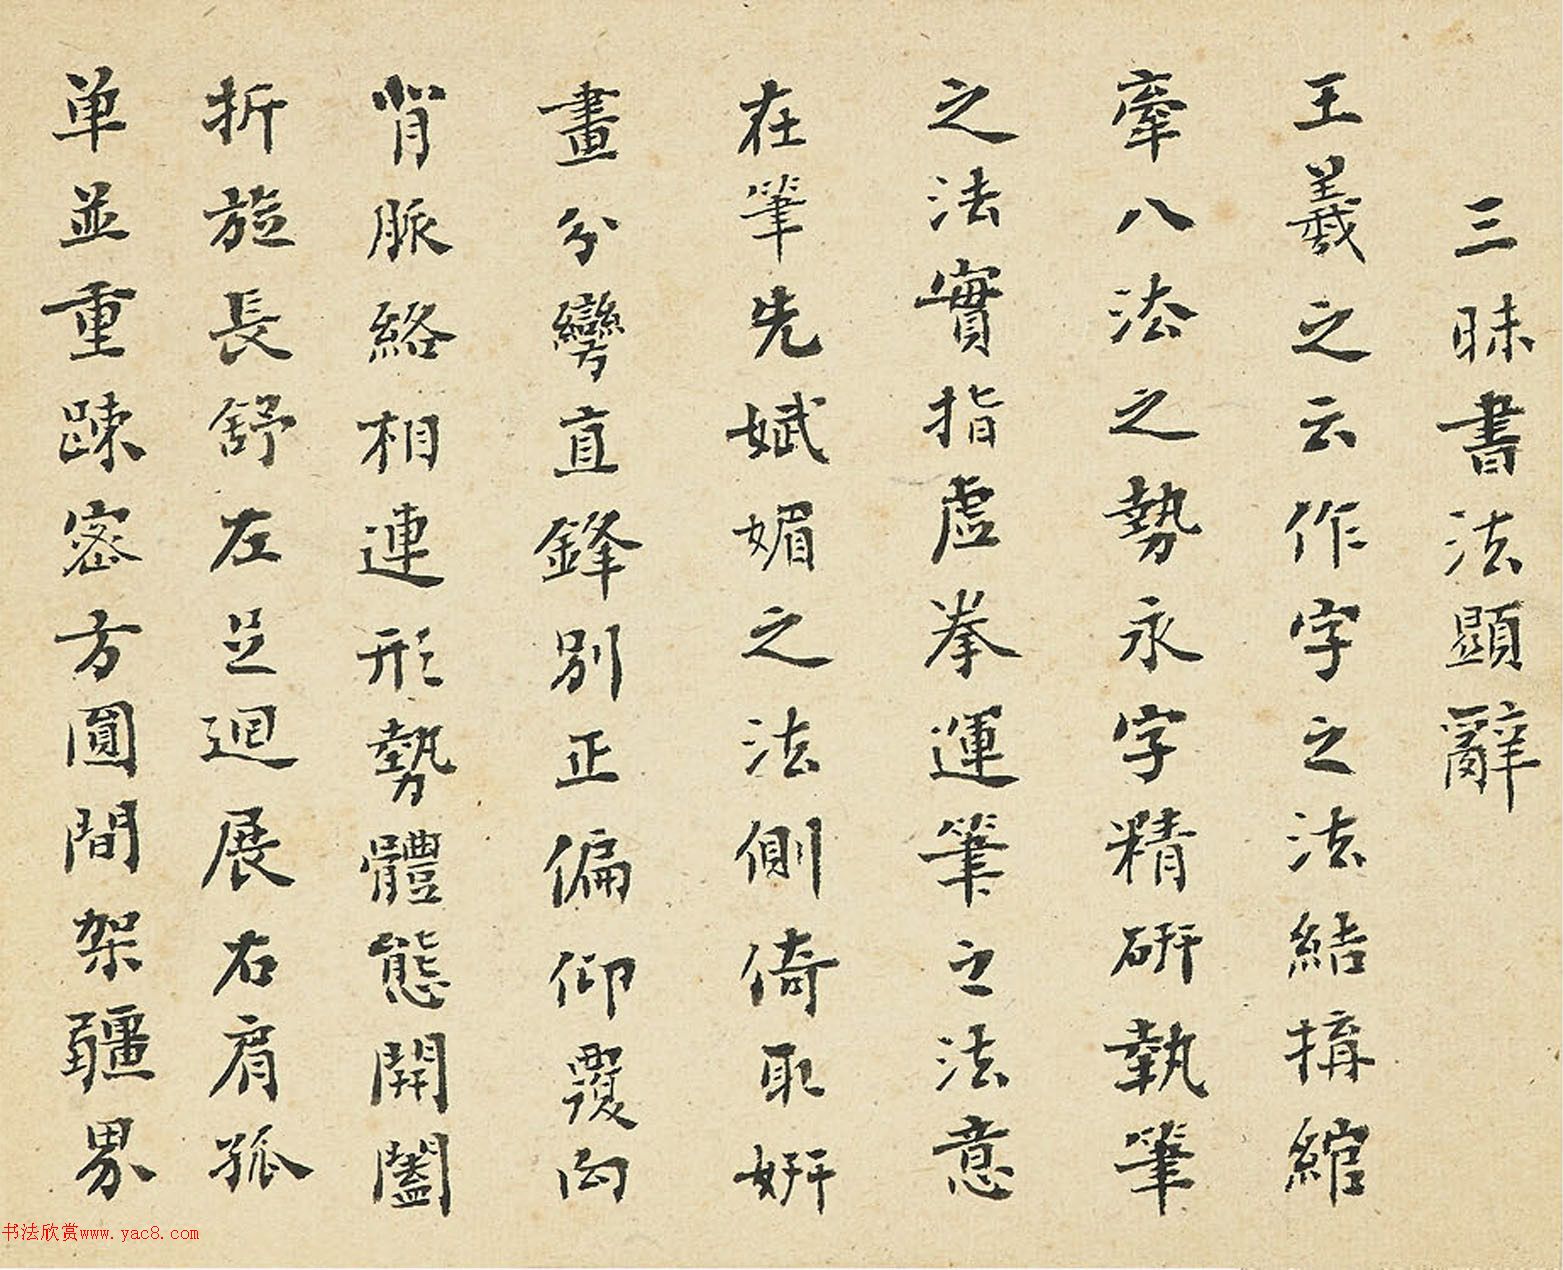 三昧書法顯辭
王羲之云作字之法結搆綰
牽八法之勢永字精研執筆
之法實指虛拳運筆之法意
在筆先娬媚之法側倚取妍
畫分彎直鋒別正偏仰覆向
背脈絡相連形勢體態開闔
折旋長舒左足迴展右肩孤
单並重疎密方圓間架疆界
书法欣赏www.yac8.com